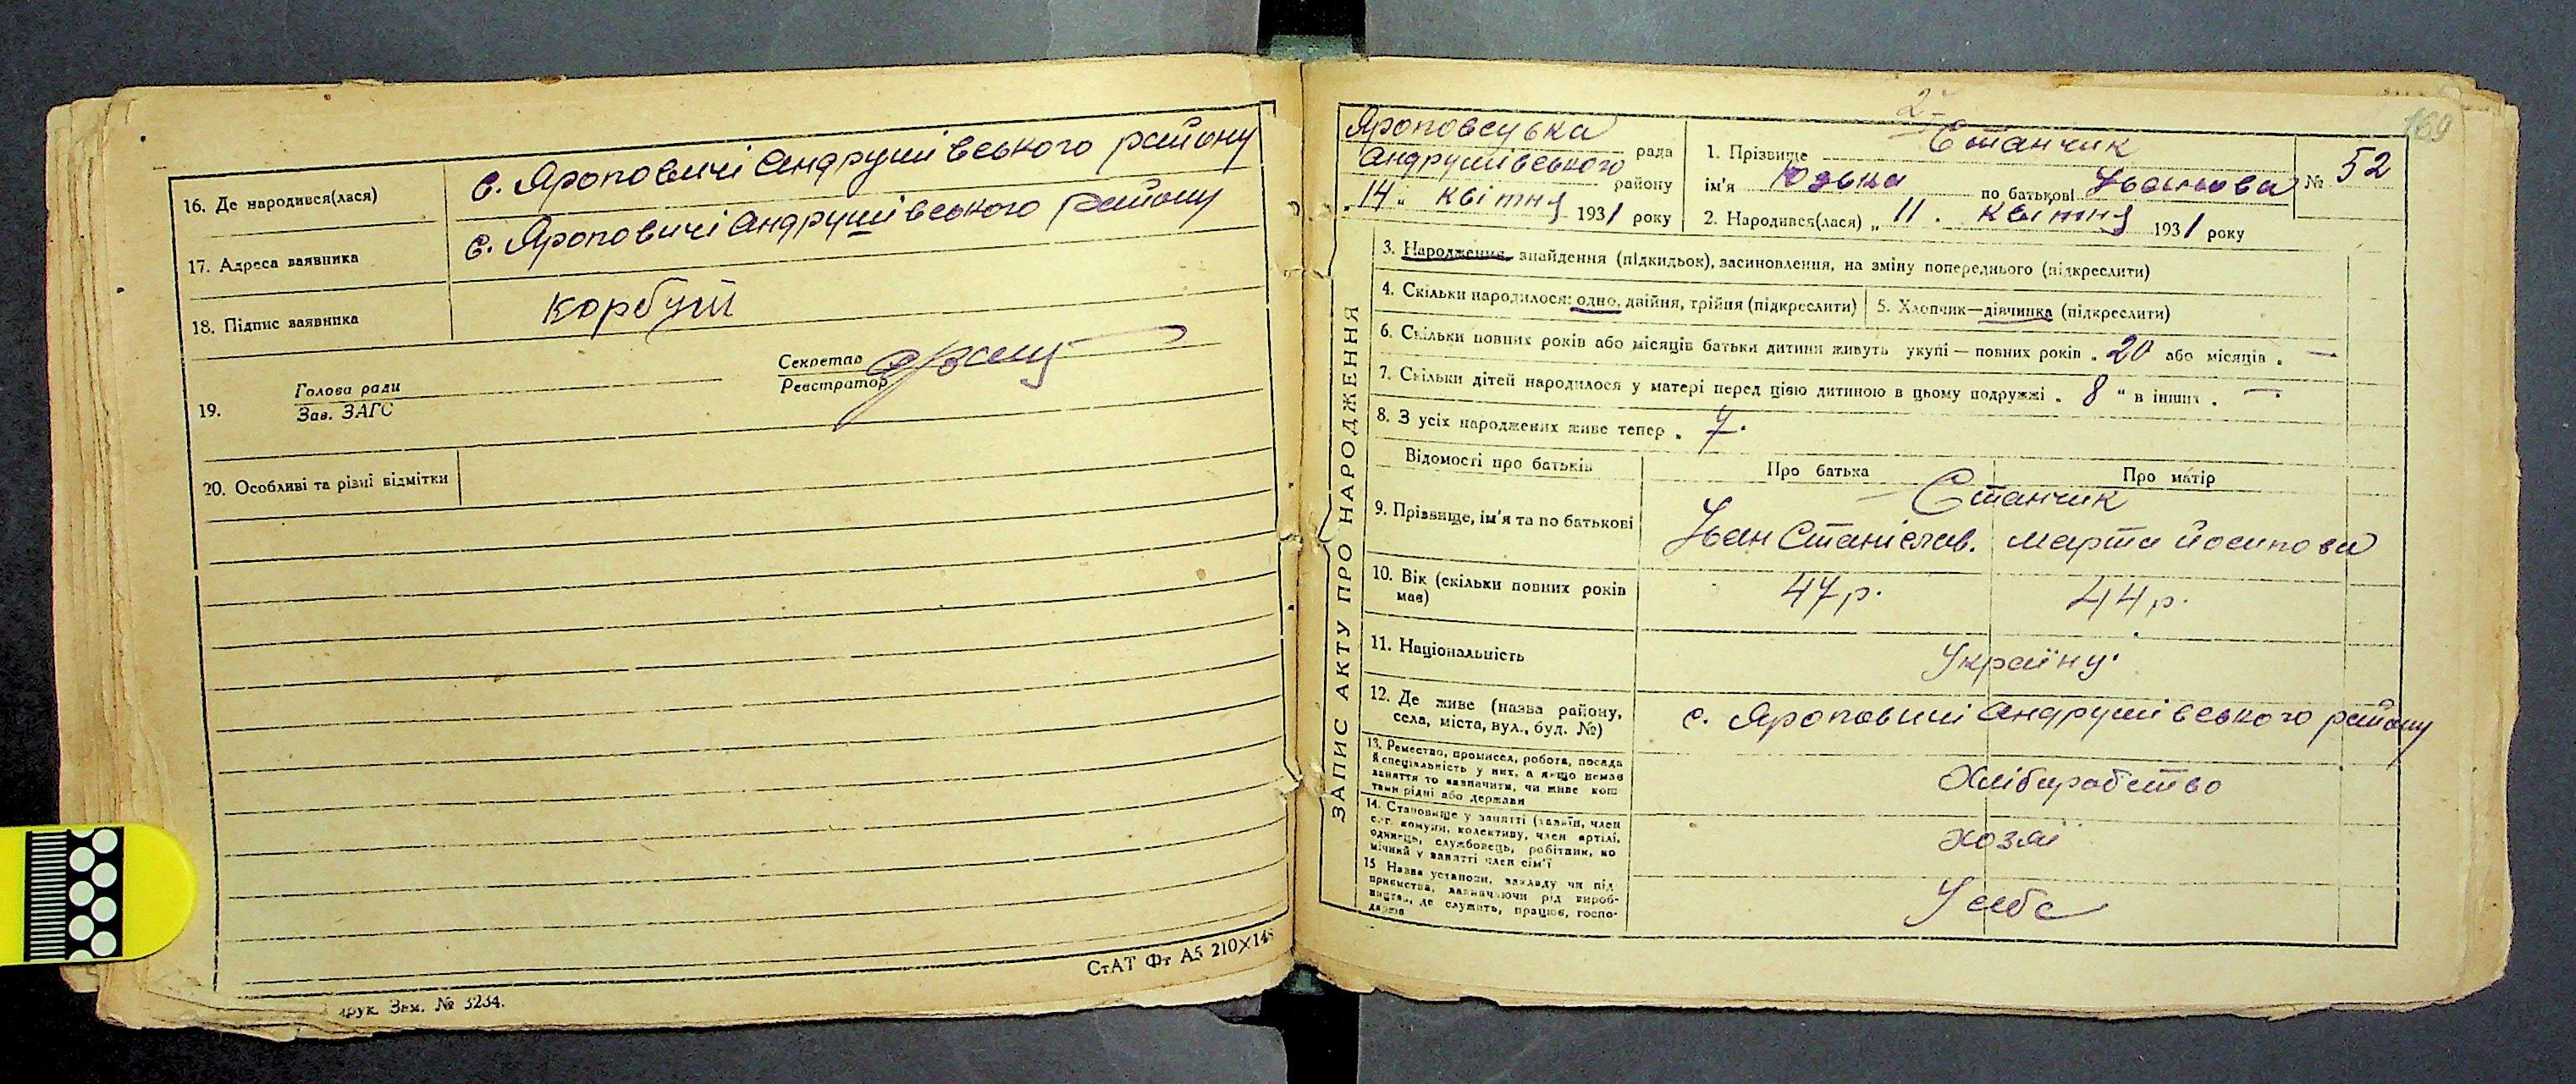 16. Де народився(лася) с. Яроповичі Андрушівського району
17. Адреса заявника с. Яроповичі Андрушівського району
18. Підпис заявника Корбут
19. Голова ради
Зав. ЗАГС
Секретар
Реєстратор
20. Особливі та різні відмітки
СтАТ Фт А5 210×148
друк. Зам. № 3234.
169
2
ЗАПИС АКТУ ПРО НАРОДЖЕННЯ
Яроповецька рада
Андрушівського району
„14“ квітня 1931 року
1. Прізвище Станчик
ім'я Юзька по батькові Іванова № 52
2. Народився(лася) „11. квітня 1931 року
3. Народження, знайдення (підкидьок), засиновлення, на зміну попереднього (підкреслити)
4. Скільки народилося: одно, двійня, трійня (підкреслити) 5. Хлопчик—дівчинка (підкреслити)
6. Скільки повних років або місяців батьки дитини живуть укупі — повних років „20 або місяців „ —
7. Скільки дітей народилося у матері перед цією дитиною в цьому подружжі „ 8 “ в інших „ —
8. З усіх народжених живе тепер „ 7.
Відомості про батьків Про батька Про матір
Станчик
9. Прізвище, ім'я та по батькові Іван Станіслав. Марта Йосипова
10. Вік (скільки повних років має) 47 р. 44 р.
11. Національність Україну.
12. Де живе (назва району, села, міста, вул., буд. №) с. Яроповичі Андрушівського району
13. Ремество, промисел, робота, посада й спеціяльність у них, а якщо немає заняття то зазначити, чи живе коштами рідні або держави Хліборобство
14. Становище у занятті (хазяїн, член с.-г. комуни, колективу, член артілі, одинець, службовець, робітник, помічний у занятті член сім'ї хозяї
15. Назва установи, закладу чи підприємства, зазначаючи рід виробництва, де служить, працює, господарює У себе